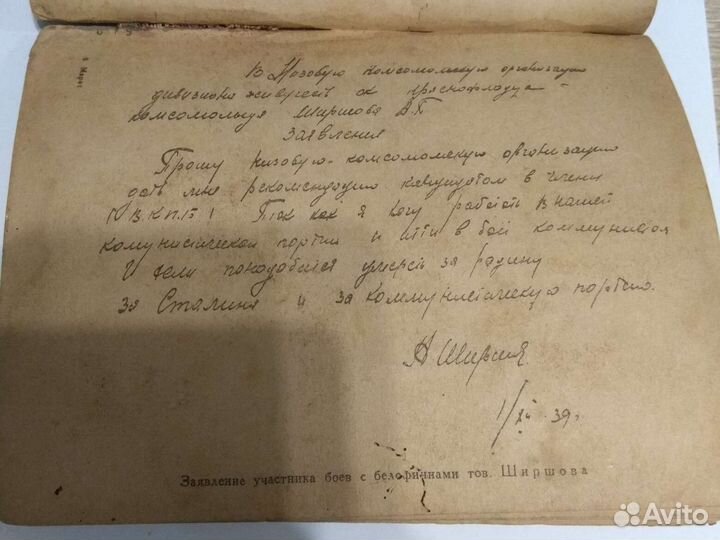 В Низовую комсомолскую организацию
дивизиона живучести от краснофлодца -
комсомольца Ширшова А.П
Заявления
Прошу низовую-комсомолскую организацию
дать мне рекомендацию кандидатом в члены
В.К.П.Б! Так как я хочу работать в нашей
комунистической партии и итти в бой коммунистом
И если понадобится умереть за родину
за Сталина и за коммунистическую портию.
А Ширшов.
1/XII 39г
Заявление участника боев с белофиннами тов. Ширшова
6 Марат
Avito